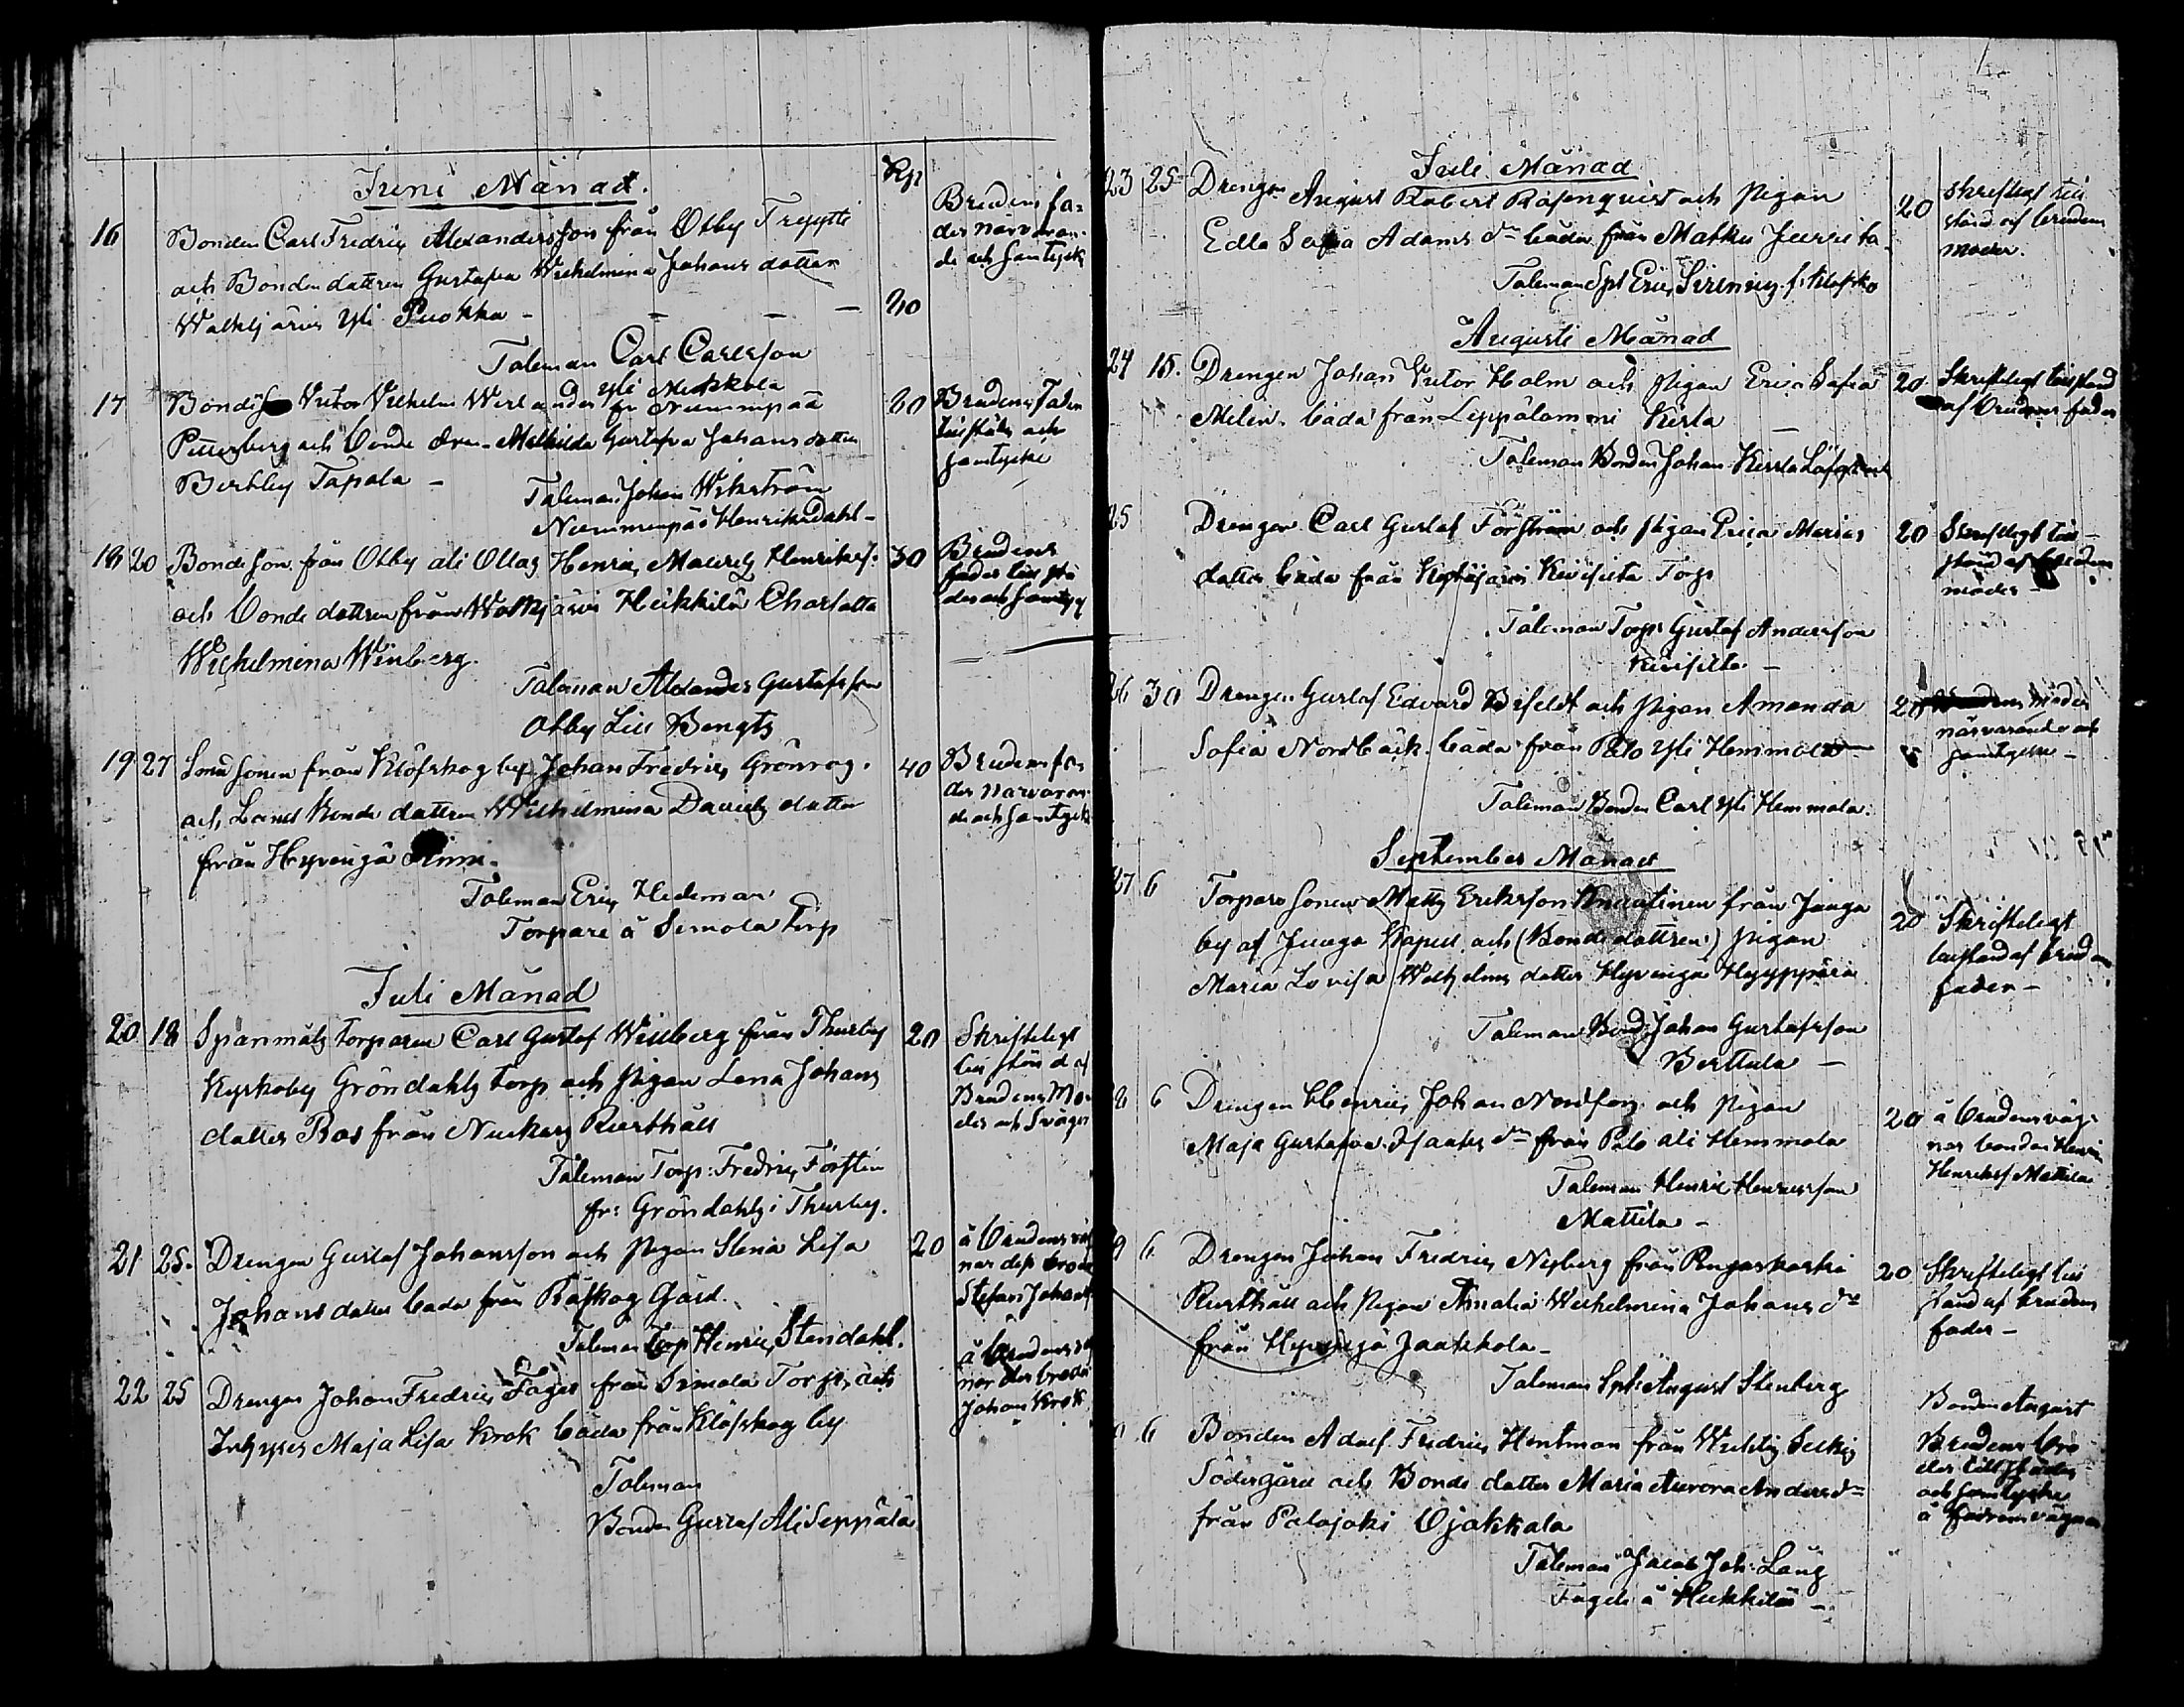 Kp
Juni Månad.
16 Bonden Carl Fredric Alexandersson från Otby Treyytti
och Bondedattren Gustafva Wilhelmina Johans datter
Walkjärvi yli Puokka - - - - 20
Brudens fa-
der närvaran-
de och samtyck
Taleman Carl Carlsson
yli Nukkola
17 Bonds Victor Vilhelm Werlander fr Nummenpää 20
och Bonde Mathilda Gustafva Johansdatter
Tapola -
Brudens Fader
tillstäds och
samtycke
Taleman Johan Wikström
Nummenpää Henriksdahl -
18 20 Bonde Son från Otby ali Ollas Henric Mauritz Henrikss. 30
och Bonde dattren från Walkjärvi Heikkilä Charlotta
Wilhelmina Winberg.
Brudens
fader till stä
des och samtyc
Taleman Alexander Gustafsson
Otby Lill Bengts
19 27 Smidsonen från Klöfskog by Johan Fredric Grönroos. 40
och Lands Bonde dattren Wilhelmina Davids datter
från Hyvenga
Brudens fa
der närvaran
de och samtyck
Taleman Eric Hedeman
Torpare å Simola Torp
Juli Månad
20 18 Spanmåls torparen Carl Gustaf Willberg från Thusby 20
Kyrkoby Gröndahls torp och pigan Lena Johans
datter Bos från Nuckars Rusthåll
Skrifteligt
tillstånd af
Brudens Mo-
der och Svåger
Taleman Torp: Fredric Förstin
fr: Gröndahls i Thusby.
21 25. Drengen Gustaf Johansson och Pigan Stina Lisa 20
Johans datter båda från Råskog Gård.
å Brudens väg
nar dess broder
Stefan Johansf
Taleman Torp Henric Stendahl.
22 25 Drengen Johan Fredric Fager från Simola Torp, och
Inhyses Maja Lisa Krok båda från Klöfskog by
å Brudens väg
nar des broder
Johan Krok
Taleman
Bonden Gustaf Ali Seppälä
Juli Månad
23 25 Drengen August Robert Rosenqvist och Pigan 20
Edla Sofia Adams dr båda från Mathu Jussila
Skriftligt till
stånd af brudens
moder.
Taleman Spt Eric Sirenius f. Klöfsko
Augusti Månad
24 15. Drengen Johan Victor Holm och Pigan Erica Sofia 20
Milén. båda från Leppälammi Kirla -
Skrifteligt tillstånd
af Brudens fader
Taleman Bonden Johan Kerla Löfqvist
25 Drengen Carl Gustaf Förström och Pigan Erica Marias 20
datter båda från Kytäjärvi Kivisilta Torp
Skrifteligt till-
stånd af brudens
moder -
Taleman Torp: Gustaf Andersson
Kivisilta. -
26 30 Drengen Gustaf Edvard Bifeldt och Pigan Amanda 20
Sofia Nordbäck. båda från Palo yli Hemmola
moder
närvarande och
samtycke -
Taleman Bonden Carl yli Hemmola.
September Månad
27 6 Torpare Sonen Matts Eriksson Knuutinen från Janga 20
by af Janga Kapell och (Bondedattren) Pigan
Maria Lovisa Wilhelms datter Hyvenga Hyyppärä
Skrifteligt
tillstånd af brudens
fader -
Taleman Bond: Johan Gustafsson
Berttula -
28 6 Drengen Henric Johan Nordfors och Pigan 20
Maja Gustafva Isaaks dr från Palo ali Hemmola
å brudens väg-
nar bonden Henric
Henriks Mattila
Taleman Henric Henricsson
Mattila -
29 6 Drengen Johan Fredric Nyberg från Rengaskoski 20
Rusthåll och Pigan Amalia Wilhelmina Johans dr
från Hyvenga Jaakkola -
Skrifteligt till
stånd af brudens
fader -
Taleman Spt: August Stenberg
6 Bonden Adolf Fredric Hentman från Wichtis Selki
Södergård och Bonde datter Maria Aurora Anders dr
från Palojoki Ojakkala
Bonden August
Brudens bro
der tillstädes
och samtycke
å fadrens vägnar
Taleman Jacob Joh: Lång
Fagel: å Heikkilä -